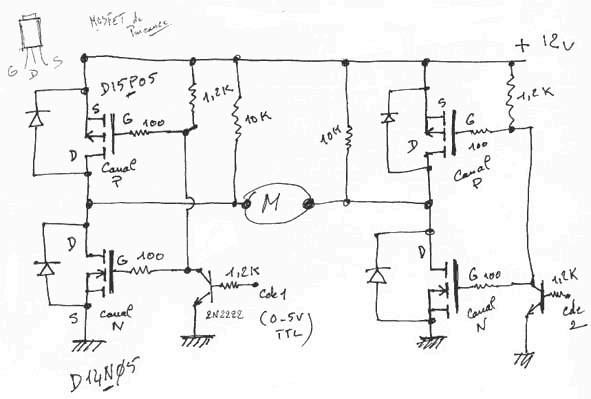 MOSFET de
Puissance
G D S
+ 12V
D15P05
S
G
100
D
Canal
P
1,2K
10K
10K
M
S
G
100
D
Canal
P
1,2K
D
G
100
S
Canal
N
1,2K
Cde 1
(0-5V
TTL)
2N2222
D
G 100
Canal
N
1,2K
Cde
2
D14N05